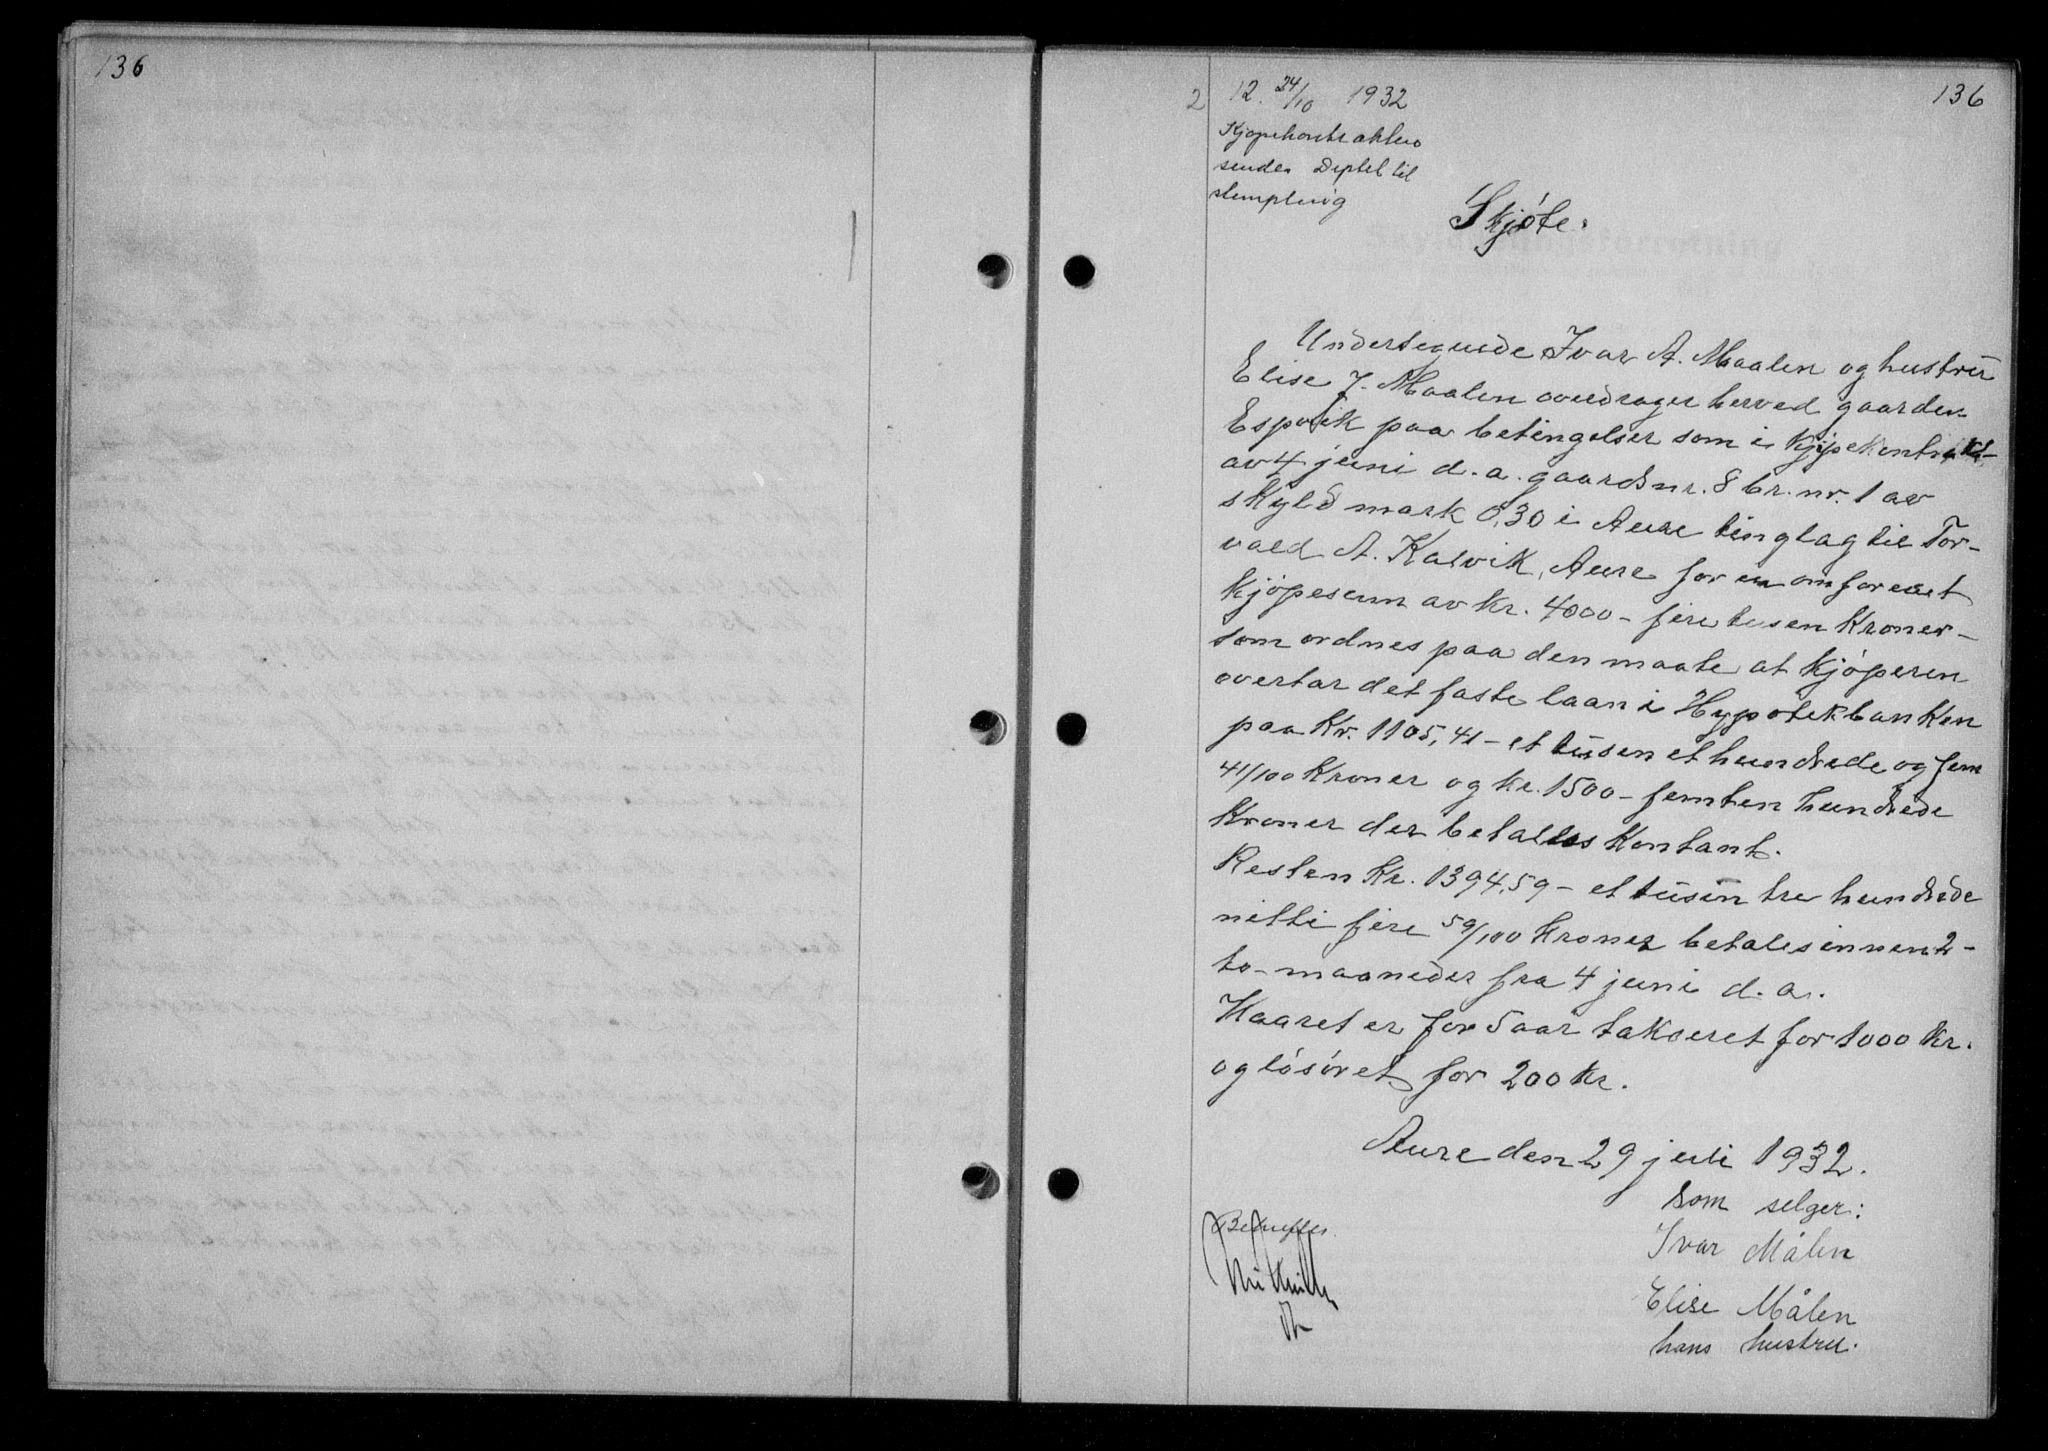 136
136
2 12. 24/10 1932
Kjøpekontrakten
sendes Deptet til
stempling
Skjøte.
Undertegnede Ivar A. Maalen og hustru
Elise J. Maalen overdrager herved gaarden
Espvik paa betingelser som i kjøpekontrakt
av 4 juni d.a. gaardsnr. 8 br. nr. 1 av
skyld mark 0,30 i Aure tinglag til Tor-
vald A. Kalvik, Aure for en omforenet
kjøpesum av kr. 4000 - fire tusen kroner -
som ordnes paa den maate at kjøperen
overtar det faste laan i Hypotekbanken
paa kr. 1105,41 - et tusen et hundrede og fem
41/100 kroner og kr. 1500 - femten hundrede
kroner der betales kontant.
Resten kr. 1394,59 - et tusin tre hundrede
nitti fire 59/100 kroner betales innen 2 -
to - maaneder fra 4 juni d.a.
Kaaret er for 5 aar takseret for 1000 kr.
og løsøret for 200 kr.
Aure den 29 juli 1932.
Som selger:
Ivar Målen
Elise Målen
hans hustru.
Bekreftes.